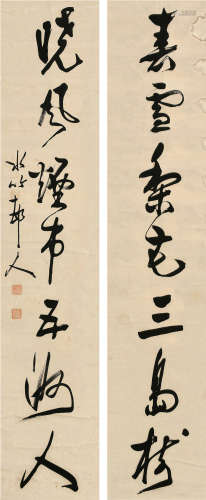 春雪梨花三島樹
曉風煙市五湖人
水竹邨人